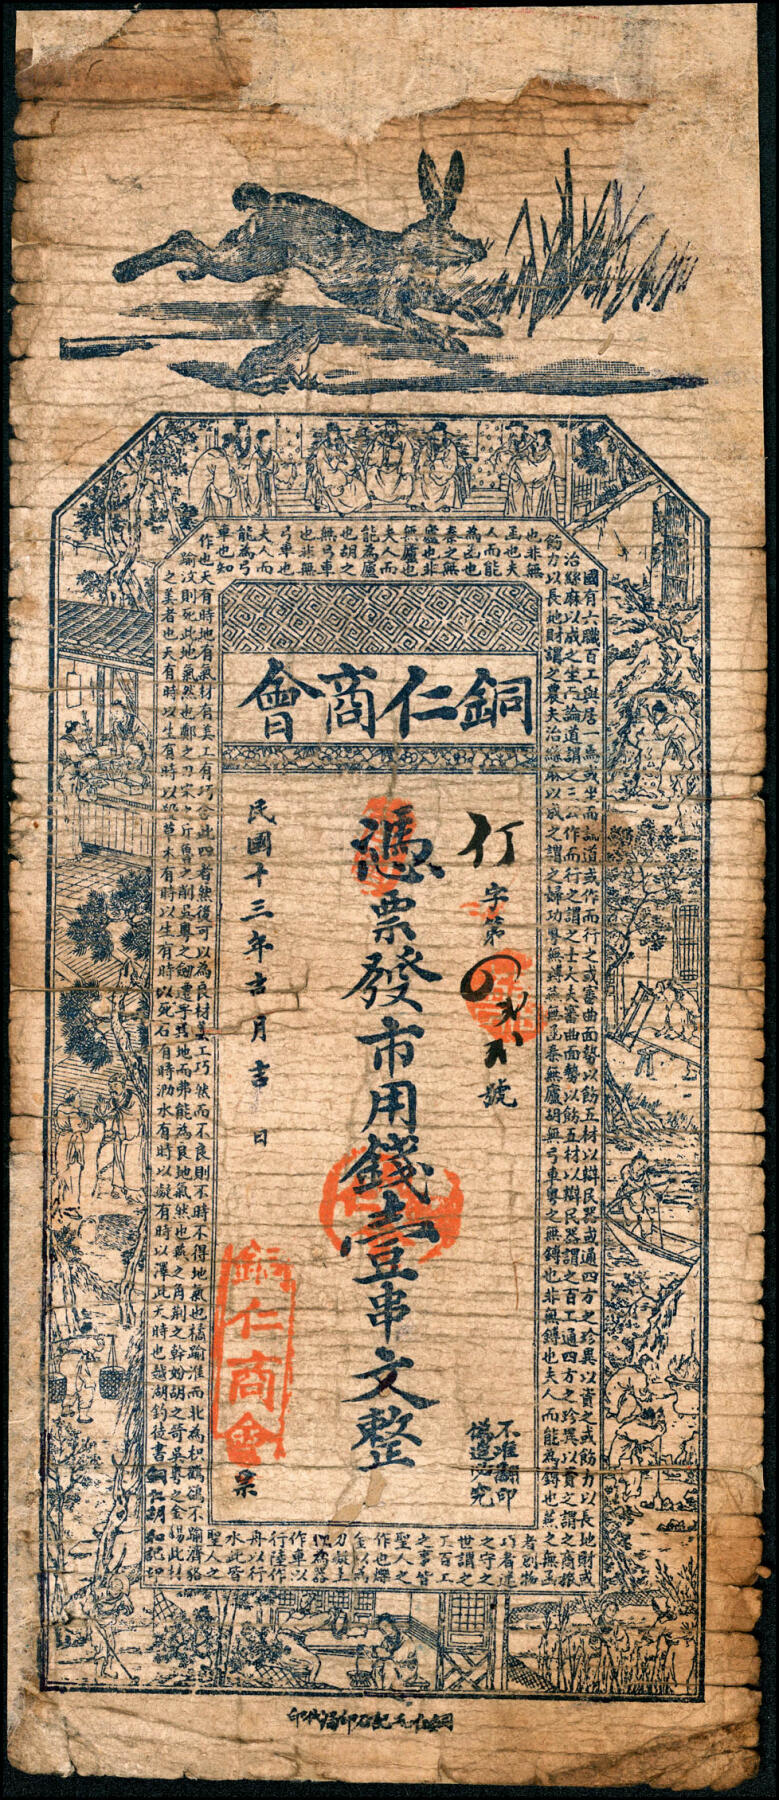 銅仁商會
仃字第
號
憑票發市用錢壹串文整
民國十三年吉月吉日
銅仁商會
票
不准翻印
偽造必究
國有六職百工與居一焉或坐而論道或作而行之或審曲面勢以飭五材以辨民器或通四方之珍異以資之或飭力以長地財或
治絲麻以成之坐而論道謂之三公作而行之謂之士大夫審曲面勢以飭五材以辨民器謂之百工通四方之珍異以資之謂之商旅
飭力以長地財謂之農夫治絲麻以成之謂之婦功粵無鎛燕無函秦無廬胡無弓車粵之無鎛也非無鎛也夫人而能為鎛也燕之無函
也非無
函也夫
人而能
為函也
秦之無
廬也非
無廬也
夫人而
能為廬
也胡之
無弓車
也非無
弓車也
夫人而
能為弓
車也知
者創物
巧者述
之守之
世謂之
工百工
之事皆
聖人之
作也爍
金以為
刃凝土
以為器
作車以
行陸作
舟以行
水此皆
聖人之
作也天有時地有氣材有美工有巧合此四者然後可以為良材美工巧然而不良則不時不得地氣也橘踰淮而北為枳鸜鵒不踰濟貉
踰汶則死此地氣然也鄭之刀宋之斤魯之削吳粵之劍遷乎其地而弗能為良地氣然也燕之角荊之幹妢胡之笴吳粵之金錫此材
之美者也天有時以生有時以殺草木有時以生有時以死石有時以泐水有時以凝有時以澤此天時也越湖釣徒書銅仁胡